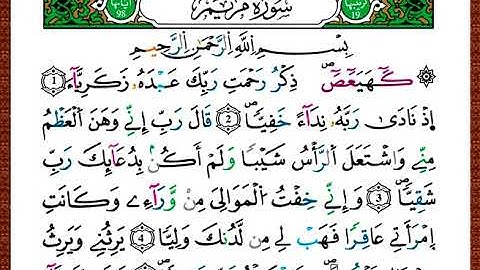 سُورَةُ مَرْيَمَ
آياتها 98
ترتيبها 19
بِسْمِ اللَّهِ الرَّحْمَٰنِ الرَّحِيمِ
كٓهيعٓصٓ ۝1 ذِكْرُ رَحْمَتِ رَبِّكَ عَبْدَهُۥ زَكَرِيَّآءَ
إِذْ نَادَىٰ رَبَّهُۥ نِدَآءً خَفِيًّا ۝2 قَالَ رَبِّ إِنِّے وَهَنَ اَلْعَظْمُ
مِنِّے وَاشْتَعَلَ اَلرَّأْسُ شَيْبًا وَلَمْ أَكُنۢ بِدُعَآئِكَ رَبِّ
شَقِيًّا ۝3 وَإِنِّے خِفْتُ اُلْمَوَٰلِىَ مِنْ وَّرَآءِے وَكَانَتِ
اِمْرَأَتِے عَاقِرًا فَهَبْ لِے مِن لَّدُنكَ وَلِيًّا ۝4 يَرِثُنِے وَيَرِثُ